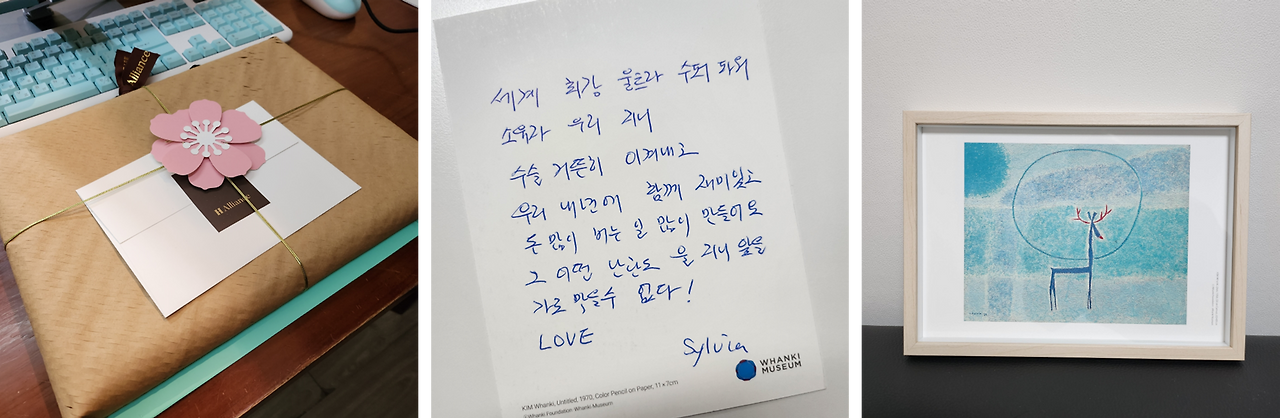 Alliance
H Alliance
세계 최강 울트라 수퍼 파워
소유자 우리 제니
수술 거뜬히 이겨내고
우리 내년에 함께 재미있고
돈 많이 버는 일 많이 만들어요
그 어떤 난관도 울 제니 앞을
가로 막을 수 없다!
LOVE
Sylvia
WHANKI
MUSEUM
KIM Whanki, Untitled, 1970, Color Pencil on Paper, 11 x 7cm
©Whanki Foundation·Whanki Museum